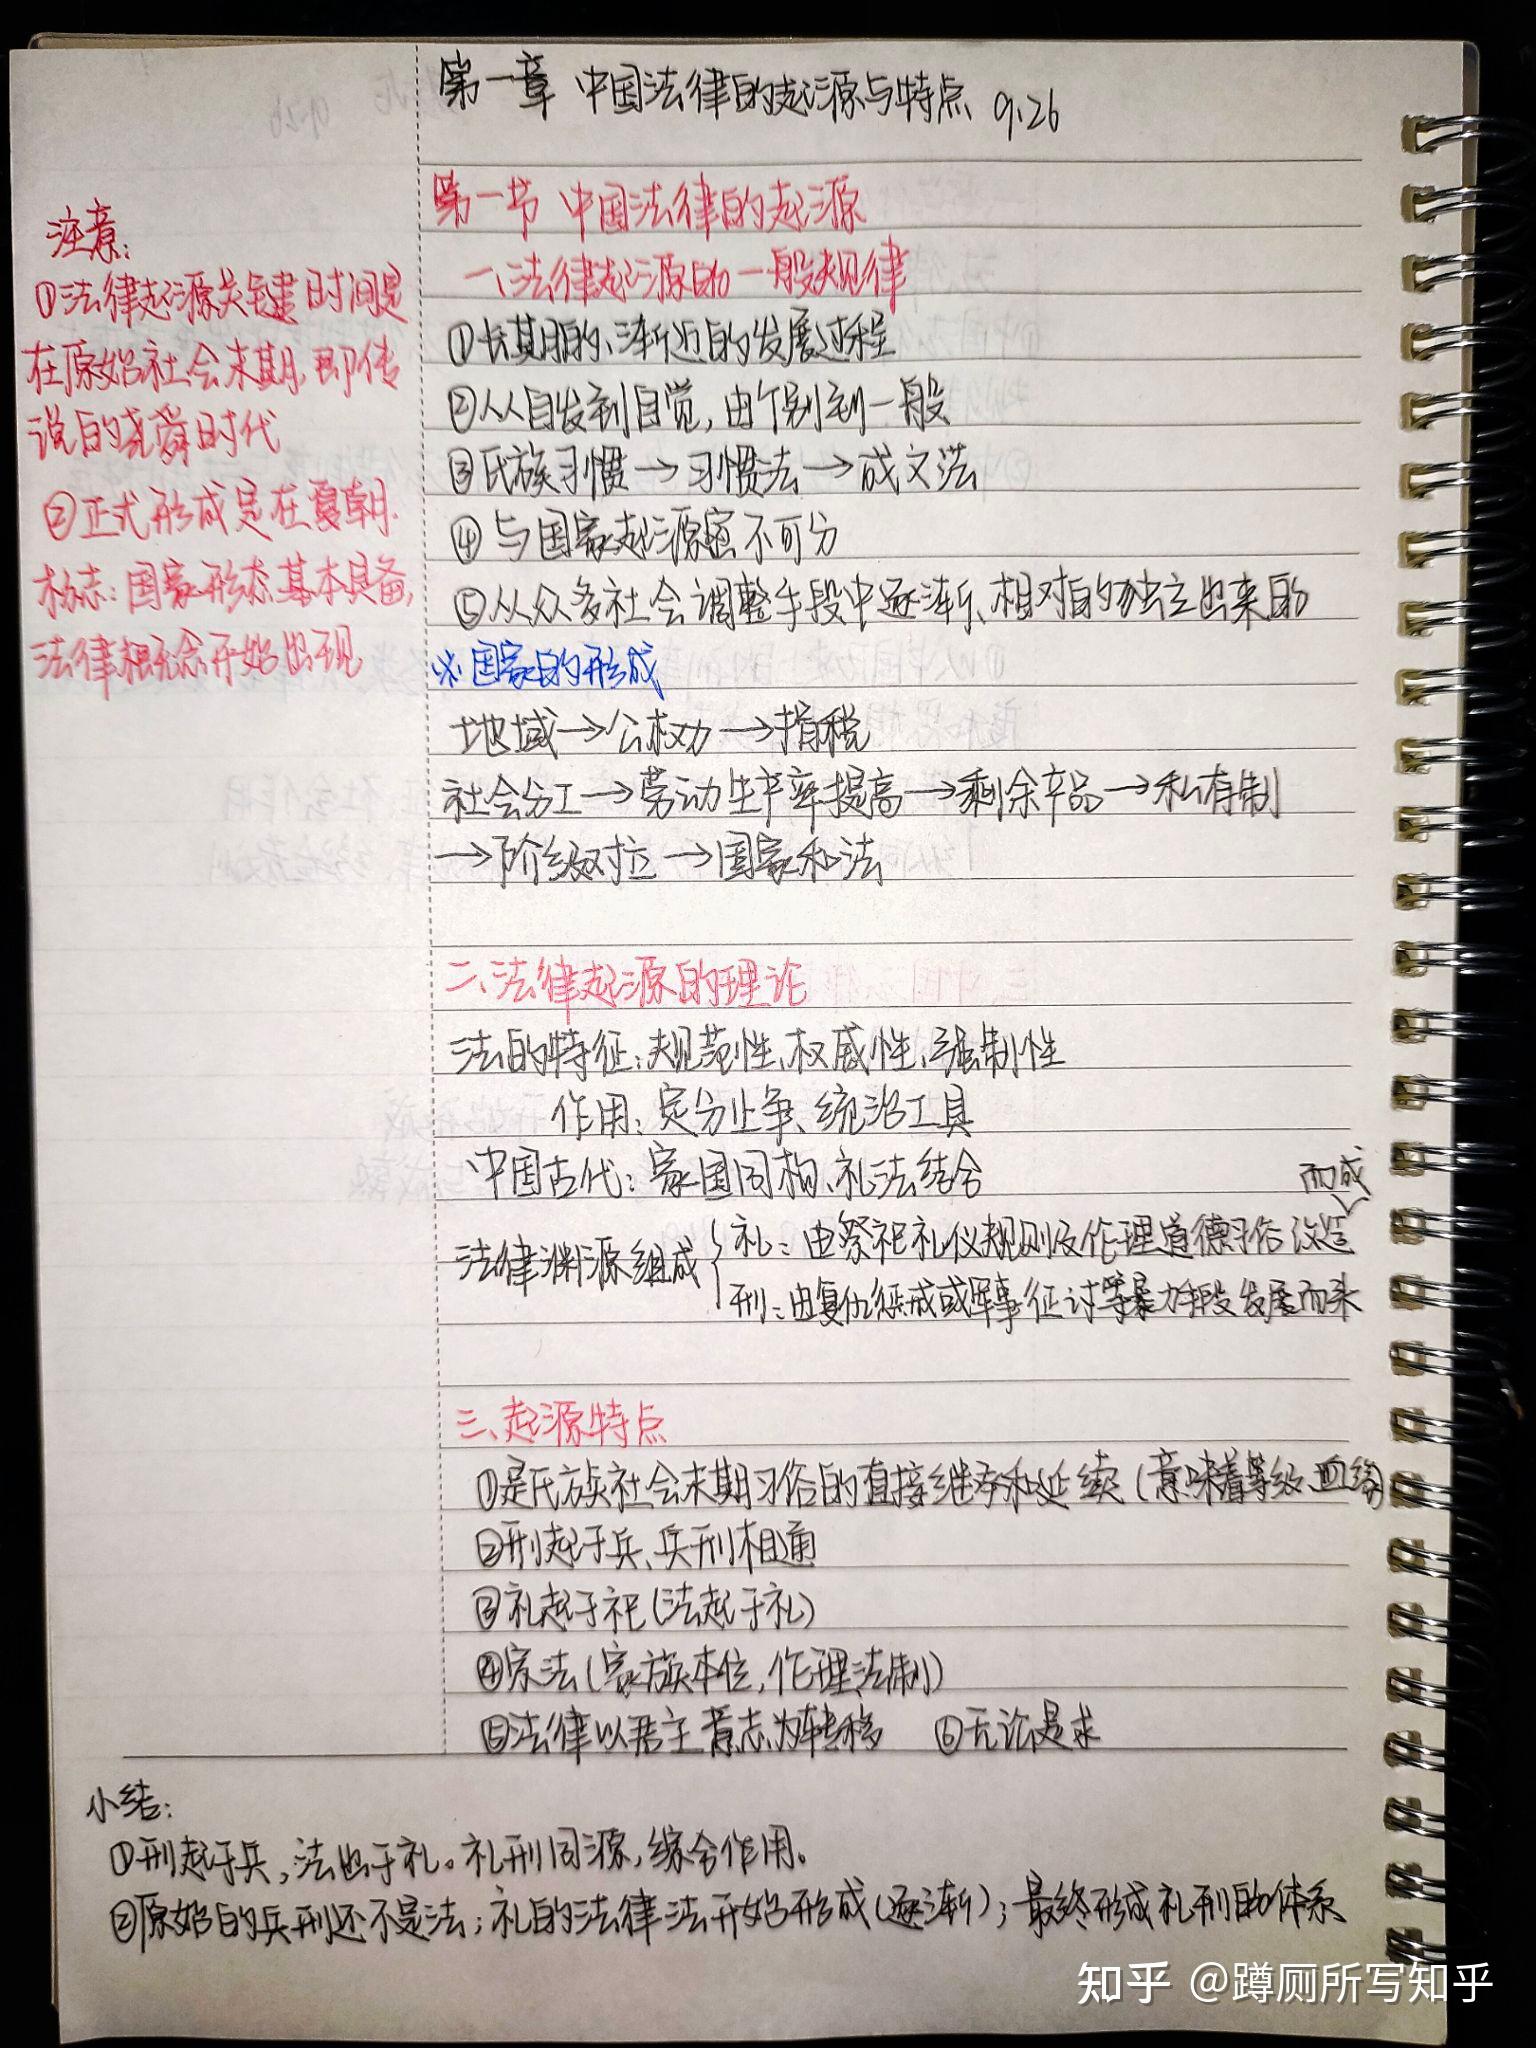 第一章 中国法律的起源与特点 9.26
注意:
①法律起源关键时间是
在原始社会末期,即传
说的尧舜时代
②正式形成是在夏朝.
标志:国家形态基本具备,
法律概念开始出现
第一节 中国法律的起源
一、法律起源的一般规律
①长期的、渐近的发展过程
②从自发到自觉,由个别到一般
③氏族习惯→习惯法→成文法
④与国家起源密不可分
⑤从众多社会调整手段中逐渐、相对的独立出来的
※国家的形成
地域→公权力→捐税
社会分工→劳动生产率提高→剩余产品→私有制
→阶级对立→国家和法
二、法律起源的理论
法的特征:规范性、权威性、强制性
作用:定分止争、统治工具
中国古代:家国同构、礼法结合
法律渊源组成
礼:由祭祀礼仪规则及伦理道德习俗改造而成
刑:由复仇惩戒或军事征讨等暴力手段发展而来
三、起源特点
①是氏族社会末期习俗的直接继承和延续(意味着等级、血缘)
②刑起于兵、兵刑相通
③礼起于祀(法起于礼)
④家法(家族本位,伦理法制)
⑤法律以君主意志为转移 ⑥无讼是求
小结:
①刑起于兵,法出于礼。礼刑同源,综合作用。
②原始的兵刑还不是法;礼的法律法开始形成(逐渐);最终形成礼刑的体系
知乎 @蹲厕所写知乎